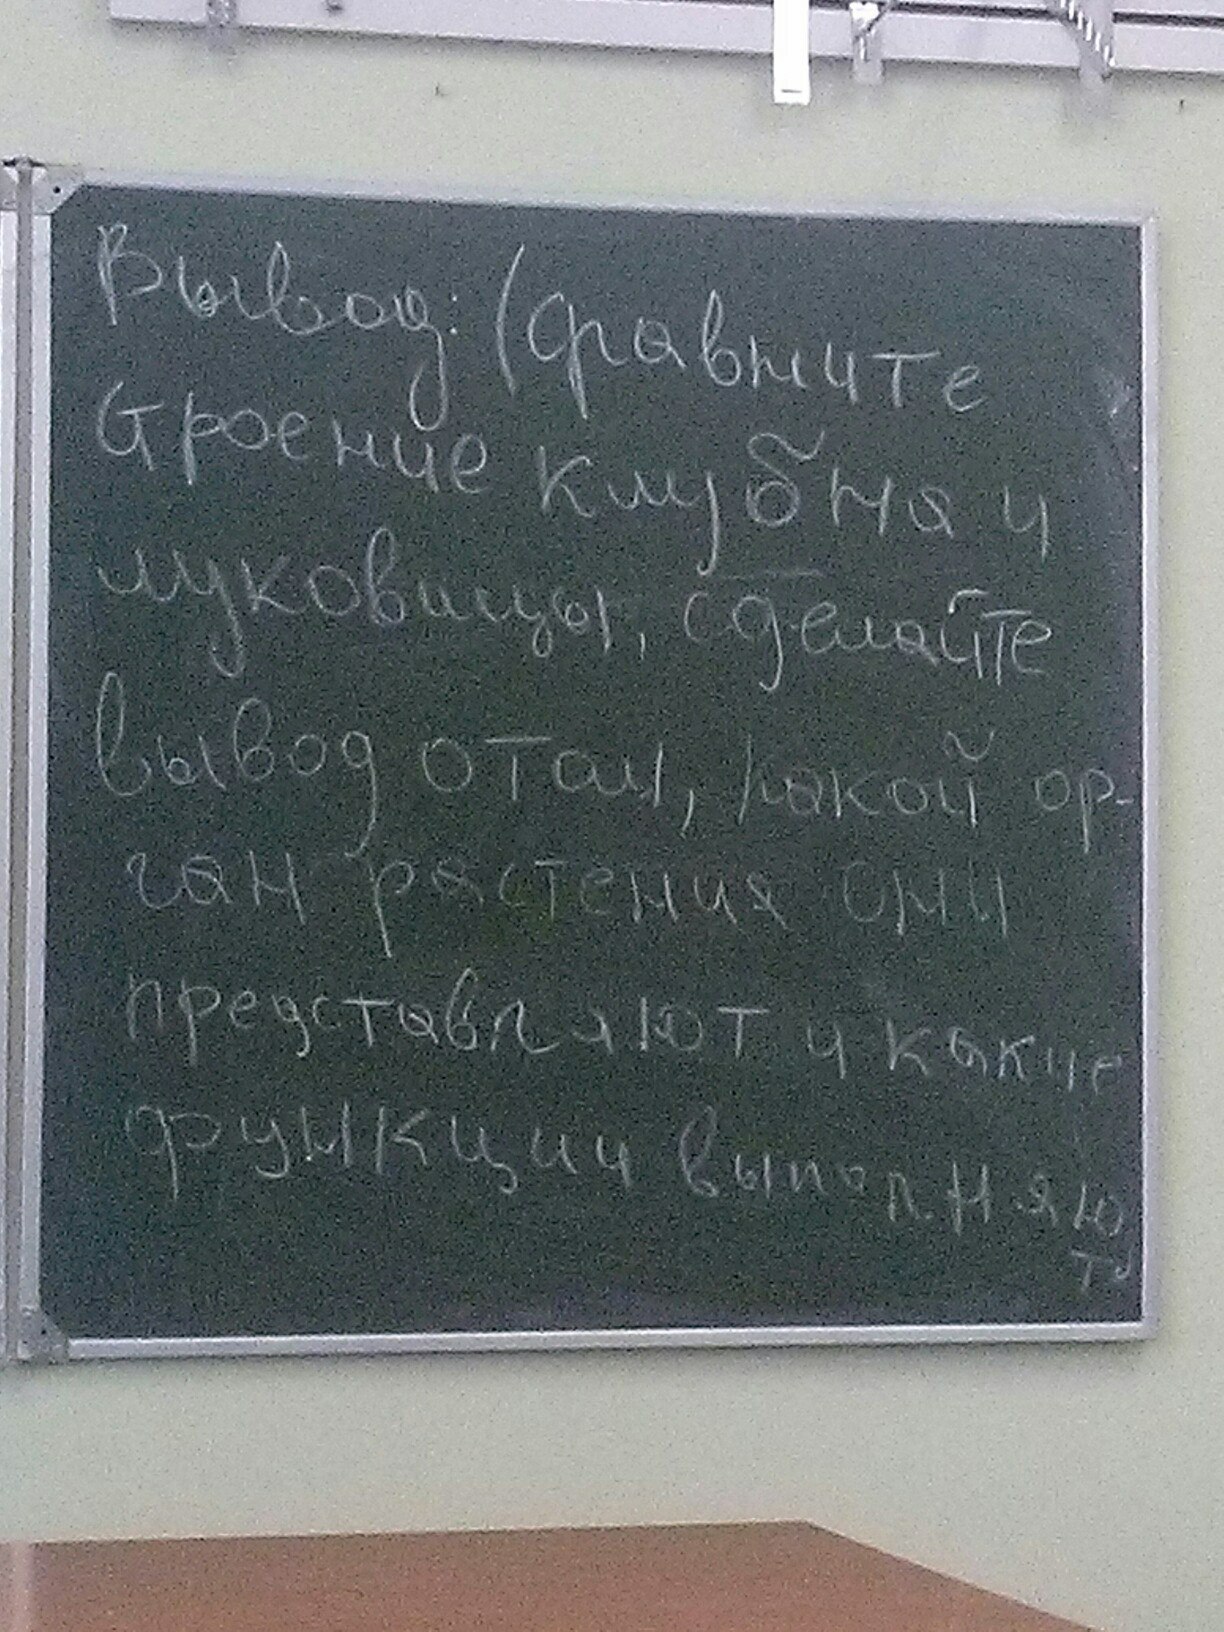 Вывод: (равните
строение клубня и
луковицы, сделайте
вывод о том, какой ор-
ган растения они
представляют и какие
функции выполняю
т)